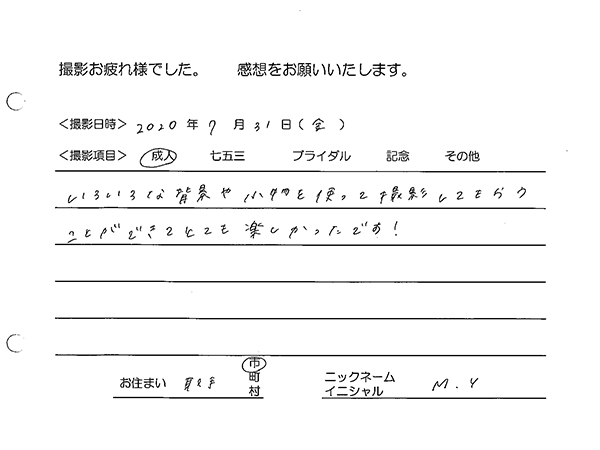 撮影お疲れ様でした。 感想をお願いいたします。
<撮影日時> 2020 年 7 月 31 日 ( 金 )
<撮影項目> 成人 七五三 ブライダル 記念 その他
いろいろな背景や小物を使って撮影してもらう
ことができてとても楽しかったです!
お住まい 取手 市 町 村 ニックネーム イニシャル M.Y